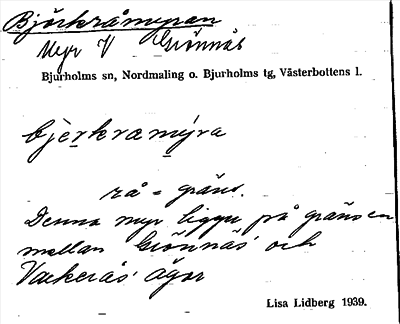 Björkråmyran
Myr V Grönnäs
Bjurholms sn, Nordmaling o. Bjurholms tg, Västerbottens l.
bjèrkramýra
rå = gräns.
Denna myr ligger på gränsen
mellan Grönnäs och
Vackeräs ägor
Lisa Lidberg 1939.